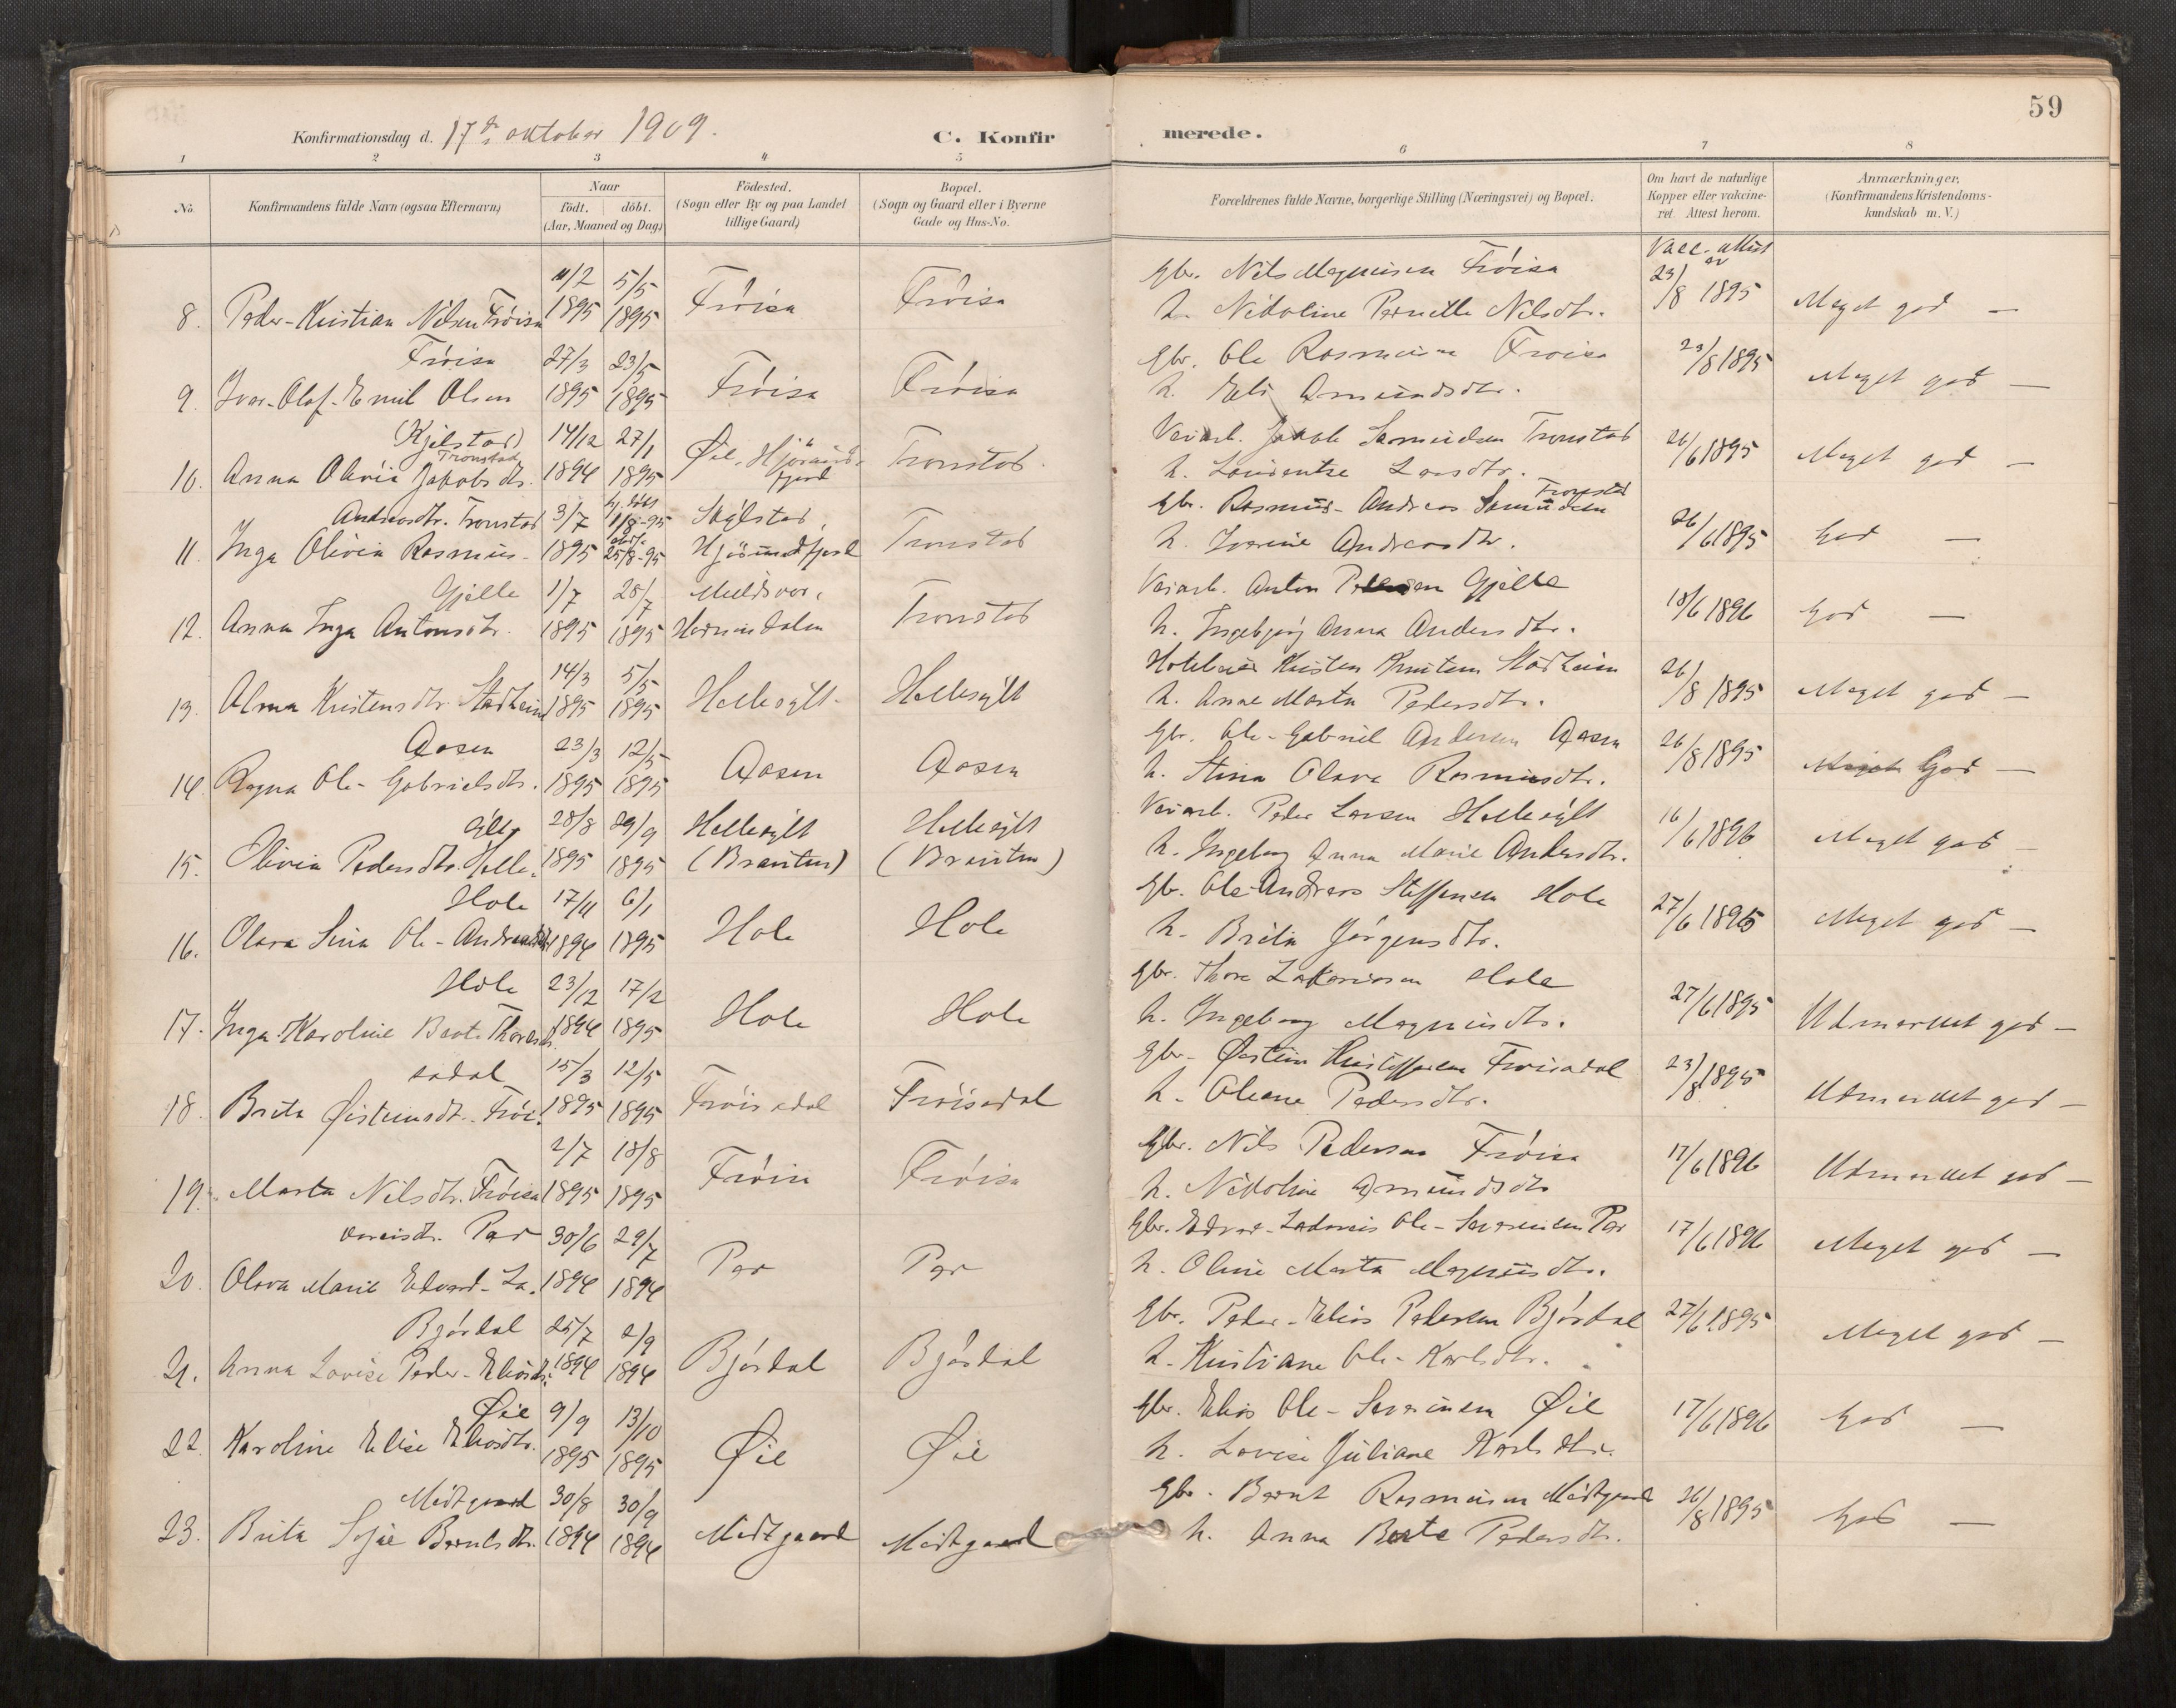 59
Konfirmationsdag d. 17de oktober 1909.
C. Konfirmerede.
1 2 3 4 5 6 7 8
No.
Konfirmandens fulde Navn (ogsaa Efternavn)
Naar
født. døbt.
(Aar, Maaned og Dag)
Födested.
(Sogn eller By og paa Landet
tillige Gaard)
Bopæl.
(Sogn og Gaard eller i Byerne
Gade og Hus-No.
Forældrenes fulde Navne, borgerlige Stilling (Næringsvei) og Bopæl.
Om havt de naturlige
Kopper eller vakcine-
ret. Attest herom.
Anmærkninger.
(Konfirmandens Kristendoms-
kundskab m. V.)
Vacc. attest
av
4/2 5/5 Gbr. Nils Magnusen Frøisa 23/8 1895
8. Peder-Kristian Nilsen Frøisa 1895 1895 Frøisa Frøisa h. Nikoline Pernille Nilsdtr. Meget god —
Frøisa 27/3 23/5 Gbr. Ole Rasmusen Frøisa 23/8 1895
9. Ivar-Olaf-Emil Olsen 1895 1895 Frøisa Frøisa h. Eli Amundsdtr. Meget god —
(Kjelstad) 14/12 27/1 Veiarb. Jakob Samuelsen Tronstad 26/6 1895
Tronstad
10. Anna Olivia Jakobsdtr. 1894 1895 Øie, Hjørundfjord Tronstad h. Laurentse Larsdtr. Meget god —
Andreasdtr. Tronstad 3/7 hj. døbt 1/8-95 Skylstad, Gbr. Rasmus-Andreas Samuelsen Tronstad
11. Inga Olivia Rasmus- 1895 25/8-95 Hjørundfjord Tronstad h. Iverine Andreasdtr. 26/6 1895 God —
Gjelle 1/7 28/7 Muldsvor, Veiarb. Anton Petersen Gjelle
12. Anna Inga Antonsdtr. 1895 1895 Hornindalen Tronstad h. Ingebjørg Anna Andersdtr. 18/6 1896 God —
14/3 5/5 Hoteleier Kristen Knutsen Stadheim
13. Alma Kristensdtr. Stadheim 1895 1895 Hellesylt Hellesylt h. Anne Marta Pedersdtr. 26/8 1895 Meget god —
Aasen 23/3 12/5 Gbr. Ole-Gabriel Andersen Aasen
14. Ragna Ole-Gabrielsdtr. 1895 1895 Aasen Aasen h. Stina Olava Rasmusdtr. 26/8 1895 Meget God —
sylt 28/8 29/9 Hellesylt Hellesylt Veiarb. Peder Larsen Hellesylt
15. Olivia Pedersdtr. Helle- 1895 1895 (Brautun) (Brautun) h. Ingeborg Anna Marie Andersdtr. 16/6 1896 Meget god —
Hole 17/11 6/1 Gbr. Ole-Andreas Steffensen Hole
16. Olava Sina Ole-Andreasdtr. 1894 1895 Hole Hole h. Brita Jørgensdtr. 27/6 1895 Meget god —
Hole 23/12 17/2 Gbr. Thore Zakariasen Hole
17. Inga-Karoline Berte Thoresdtr. 1894 1895 Hole Hole h. Ingeborg Magnusdtr. 27/6 1895 Udmerket god —
sadal 15/3 12/5 Gbr. Øistein Kristoffersen Frøisadal
18. Brita Øisteinsdtr. Frøi- 1895 1895 Frøisadal Frøisadal h. Oleane Pedersdtr. 23/8 1895 Udmerket god —
2/7 18/8 Gbr. Nils Pedersen Frøisa
19. Marta Nilsdtr. Frøisa 1895 1895 Frøisa Frøisa h. Nikoline Amundsdtr. 17/6 1896 Udmerket god —
Par 30/6 29/7 Gbr. Edvard- Ole-Severinsen Par
20. Olava Marie Edvard-La- 1894 1894 Par Par h. Oline Marta Magnusdtr. 17/6 1896 Meget god —
Bjørdal 25/7 2/9 Gbr. Peder-Elias Pedersen Bjørdal
21. Anna Lovise Peder-Eliasdtr. 1894 1894 Bjørdal Bjørdal h. Kristiane Ole-Karlsdtr. 27/6 1895 Meget god —
Øie 9/9 13/10 Gbr. Elias Ole-Severinsen Øie
22. Karoline Elise Eliasdtr. 1895 1895 Øie Øie h. Lovise Juliane Karlsdtr. 17/6 1896 God —
Midtgaard 30/8 30/9 Gbr. Bernt Rasmusen Midtgaard
23. Brita Sofie Berntsdtr. 1894 1894 Midtgaard Midtgaard h. Anna Berte Pedersdtr. 26/8 1895 God —